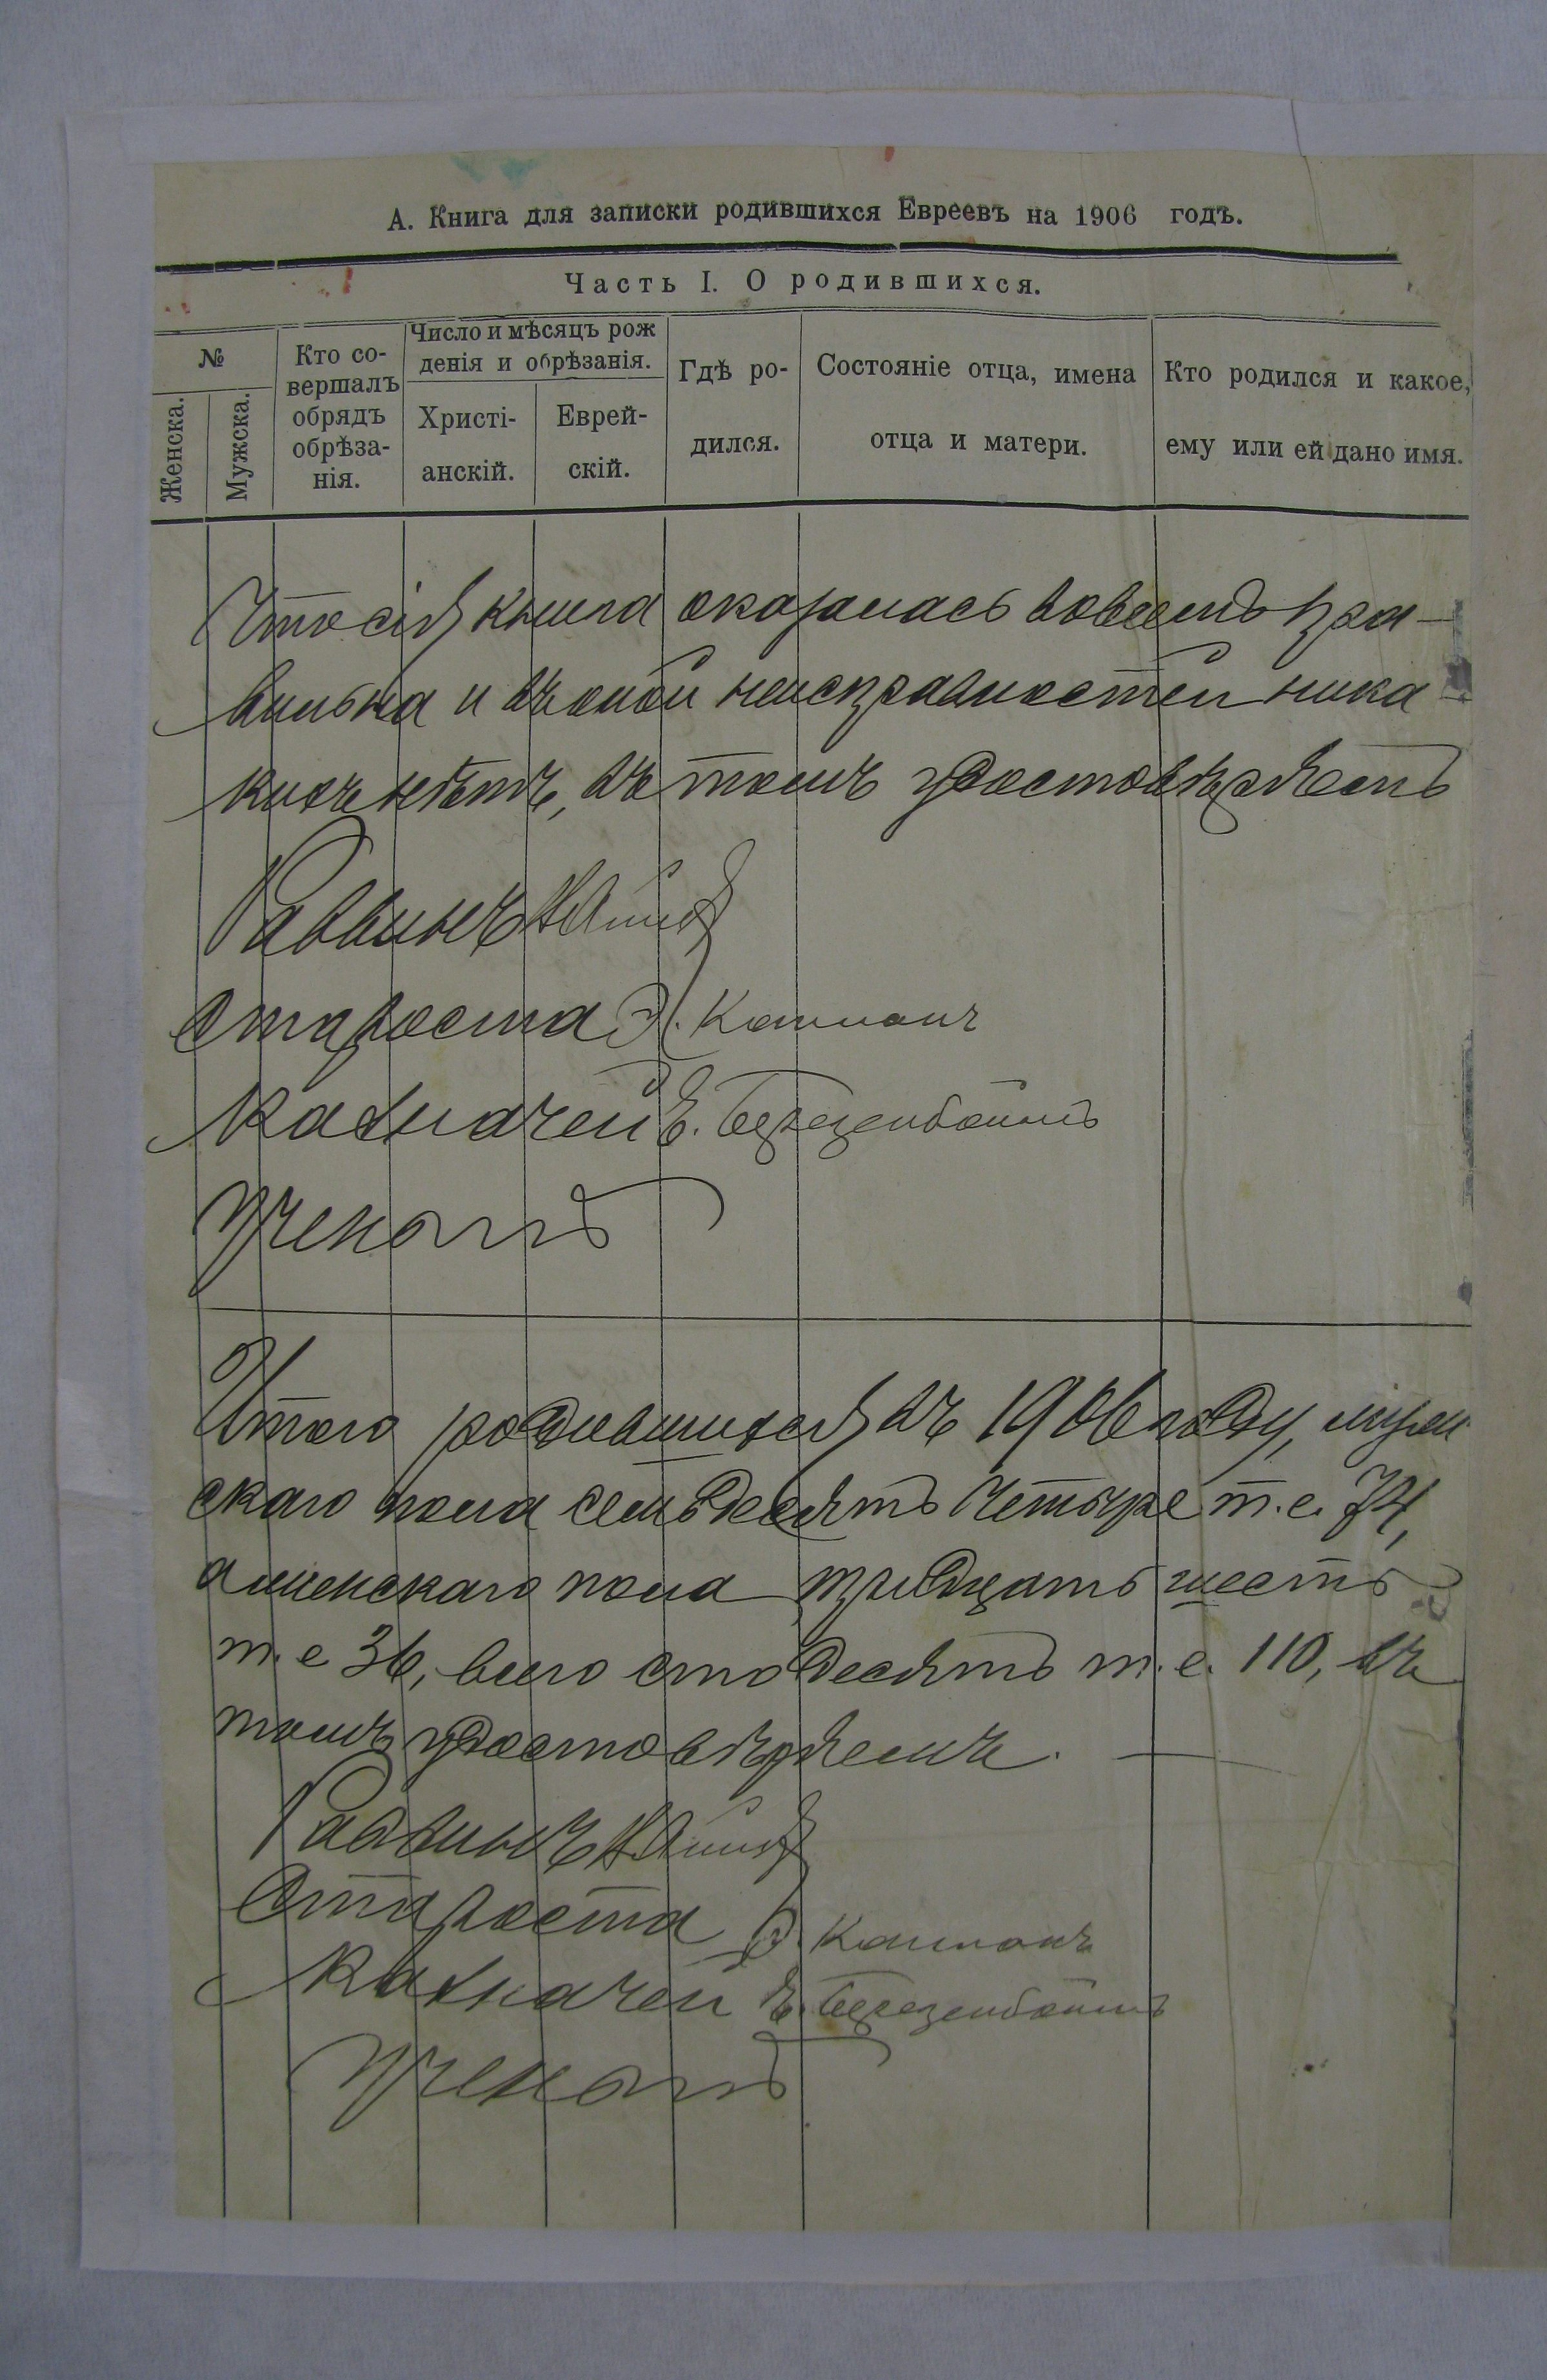 А. Книга для записки родившихся Евреевъ на 1906 годъ.
Часть I. О родившихся.
№
Женска.
Мужска.
Кто со-
вершалъ
обрядъ
обрѣза-
нія.
Число и мѣсяцъ рож
денія и обрѣзанія.
Христі-
анскій.
Еврей-
скій.
Гдѣ ро-
дился.
Состояніе отца, имена
отца и матери.
Кто родился и какое,
ему или ей дано имя.
Что сія книга оказалась вовсемъ пра-
вильна и въ оной неисправностей ника
кихъ нѣтъ, въ томъ удостовѣряемъ
Раввинъ
Староста Э. Капланъ
Казначей Е. Березенбоймъ
Ученый
Итого родившихся въ 1906 году, муж
скаго пола семьдесятъ четыре т.е. 74,
а женскаго пола тридцать шесть
т.е 36, всего сто десять т.е. 110, въ
томъ удостовѣряемъ.
Раввинъ
Староста Э. Капланъ
Казначей Е. Березенбоймъ
Ученый